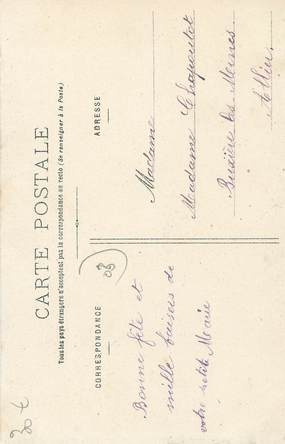 CARTE POSTALE
Tous les pays étrangers n'acceptent pas la correspondance au recto (Se renseigner à la Poste)
CORRESPONDANCE
ADRESSE
03
Bonne fête et
mille baisers de
votre petite Marie
Madame
Madame Chapentot
Buxière les Mines
Allier
30 €